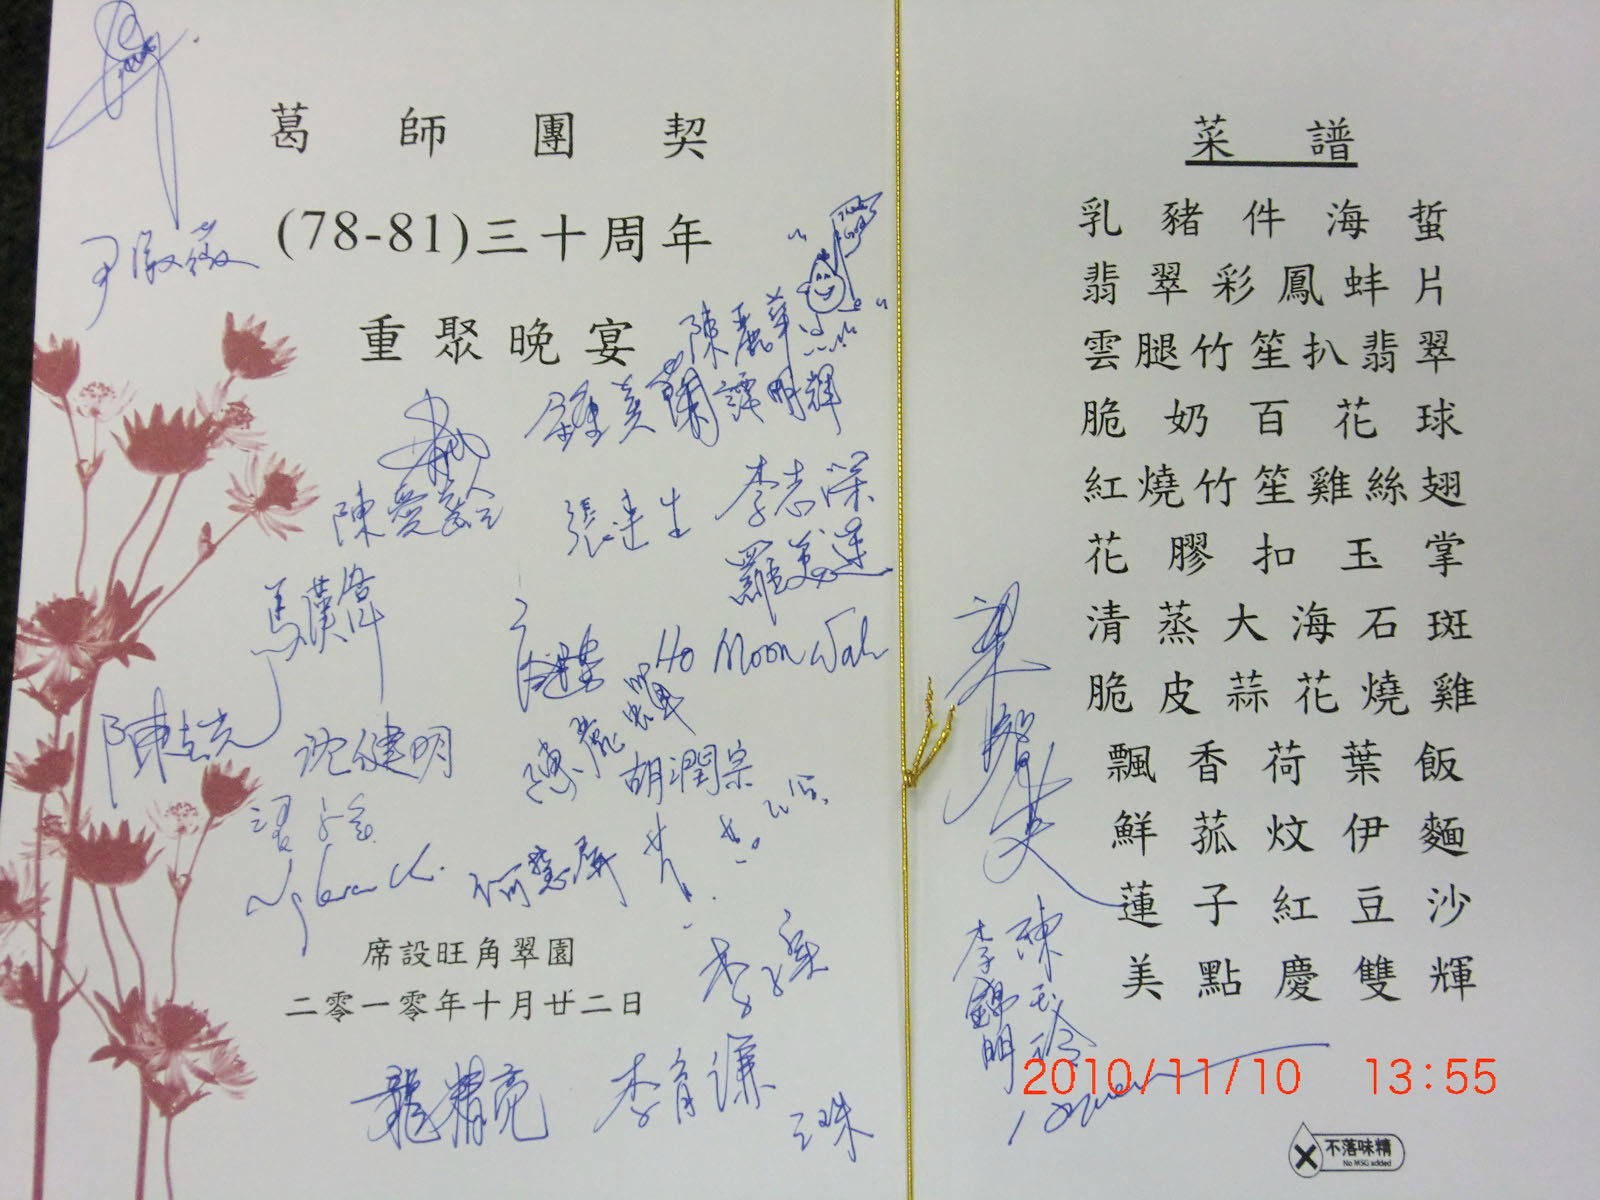 葛師團契
(78-81)三十周年
重聚晚宴
Thank God
陳麗華
鍾美蘭 譚明輝
陳愛齡
張達生
李志深
羅美蓮
馬漢偉
Ho Moon Wah
沈健明
胡潤宗
何慧屏
席設旺角翠園
二零一零年十月廿二日
龍精亮
李育謙
菜譜
乳豬件海蜇
翡翠彩鳳蚌片
雲腿竹笙扒翡翠
脆奶百花球
紅燒竹笙雞絲翅
花膠扣玉掌
清蒸大海石斑
脆皮蒜花燒雞
飄香荷葉飯
鮮菰炆伊麵
蓮子紅豆沙
美點慶雙輝
梁智英
陳玉玲
李錦明
2010/11/10 13:55
不落味精
No MSG added